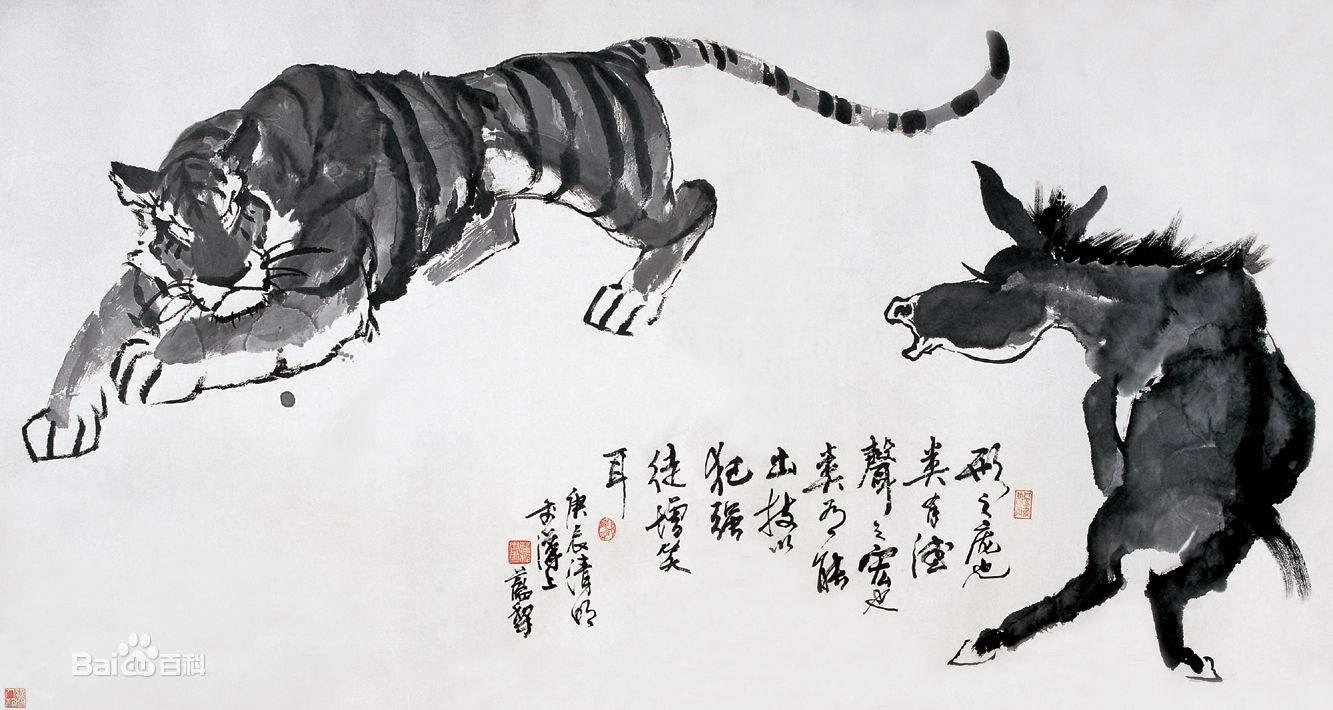 形之庞也
类有德
聲之宏也
类有能
出技以
犯强
徒增笑
耳
庚辰清明
Bai百科